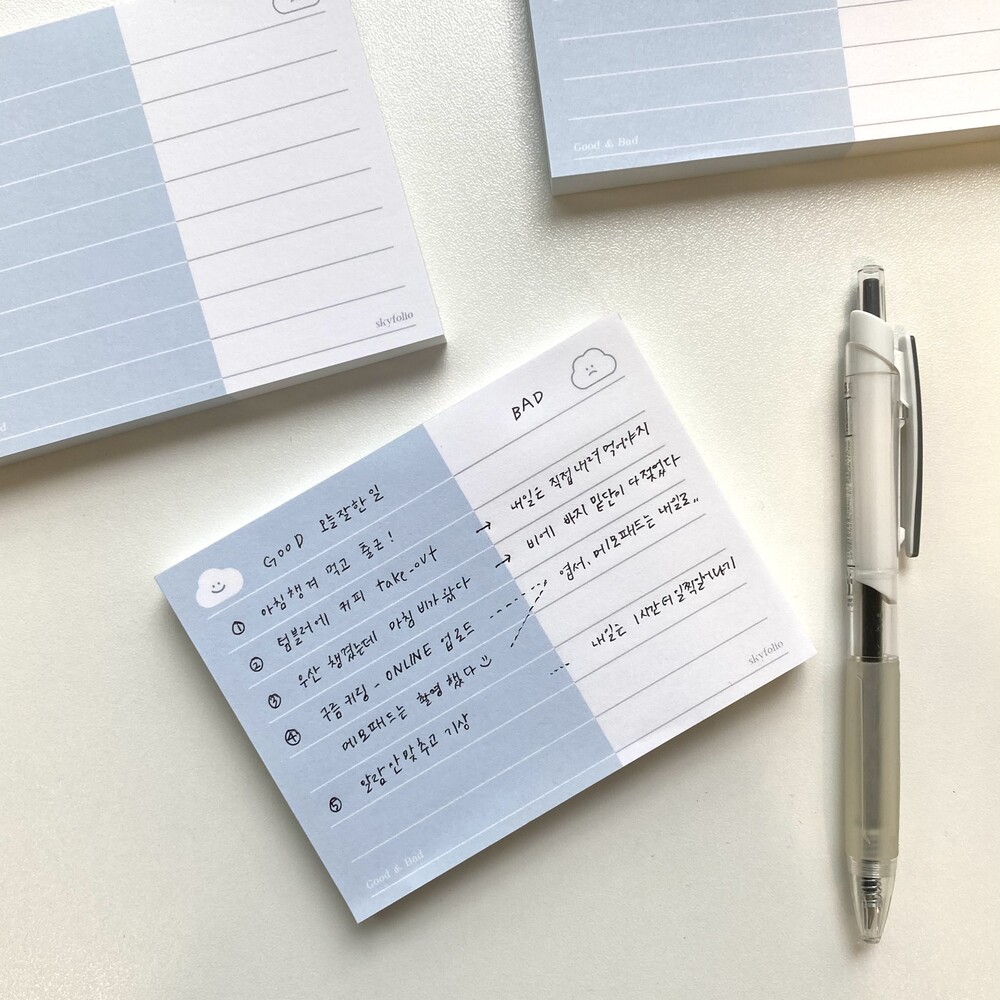 skyfolio
Good & Bad
GOOD 오늘 잘한 일
① 아침 챙겨 먹고 출근!
② 텀블러에 커피 take-out
③ 우산 챙겼는데 마침 비가 왔다
④ 구름키링 - ONLINE 업로드
메모패드는 촬영했다
⑤ 알람 안 맞추고 기상
Good & Bad
BAD
→ 내일은 직접 내려 먹어야지
→ 비에 바지 밑단이 다 젖었다
엽서, 메모패드는 내일로..
내일은 1시간 더 일찍 일어나기
skyfolio